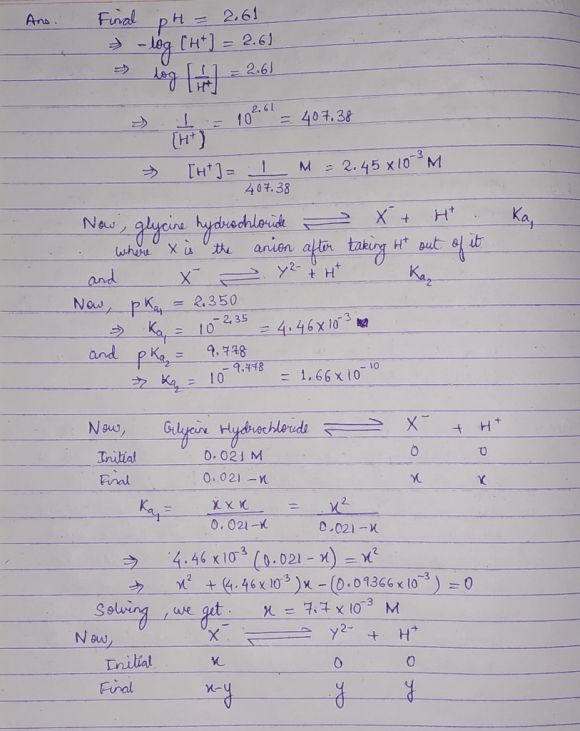 Ans. Final pH = 2.61
⇒ -log [H⁺] = 2.61
⇒ log [1/H⁺] = 2.61
⇒ 1/[H⁺] = 10^2.61 = 407.38
⇒ [H⁺] = 1/407.38 M = 2.45 × 10⁻³ M
Now, glycine hydrochloride ⇌ X⁻ + H⁺ Ka₁
where X is the anion after taking H⁺ out of it
and X⁻ ⇌ Y²⁻ + H⁺ Ka₂
Now, pKa₁ = 2.350
⇒ Ka₁ = 10^-2.35 = 4.46 × 10⁻³
and pKa₂ = 9.778
⇒ Ka₂ = 10^-9.778 = 1.66 × 10⁻¹⁰
Now, Glycine Hydrochloride ⇌ X⁻ + H⁺
Initial 0.021 M 0 0
Final 0.021 - x x x
Ka₁ = x × x / 0.021 - x = x² / 0.021 - x
⇒ 4.46 × 10⁻³ (0.021 - x) = x²
⇒ x² + (4.46 × 10⁻³) x - (0.09366 × 10⁻³) = 0
Solving, we get. x = 7.7 × 10⁻³ M
Now, X⁻ ⇌ Y²⁻ + H⁺
Initial x 0 0
Final x-y y y